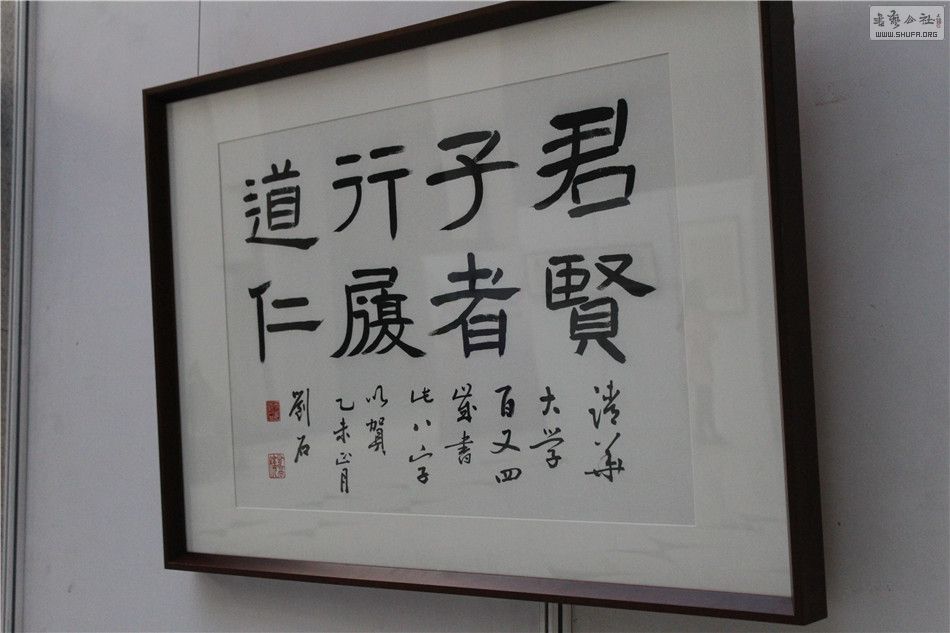 君子行道
賢者履仁
清華
大学
百又四
歲書
此八字
以賀
乙未正月
劉石
书艺公社
WWW.SHUFA.ORG